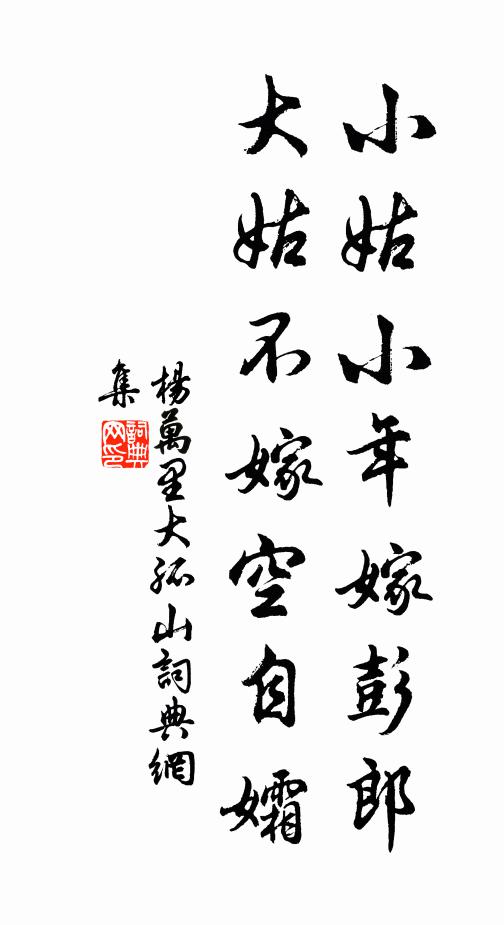 小姑小年嫁彭郎
大姑不嫁空自孀
楊萬里大孤山詞典網
集
詞典網印